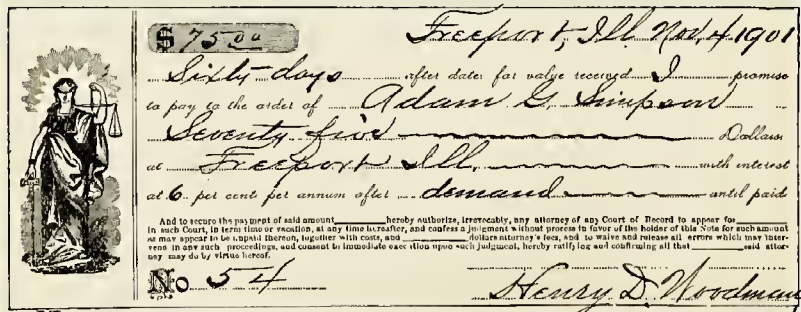 $ 75.00 Freeport, Ill. Nov. 4 1901
Sixty days after date for value received I promise
to pay to the order of Adam G. Simpson
Seventy five Dollars
at Freeport Ill. with interest
at 6 per cent per annum after demand until paid
And to secure the payment of said amount ______ hereby authorize, irrevocably, any attorney of any Court of Record to appear for ______
in such Court, in term time or vacation, at any time hereafter, and confess a judgment without process in favor of the holder of this Note for such amount
as may appear to be unpaid thereon, together with costs, and ______ dollars attorney's fees, and to waive and release all errors which may inter-
vene in any such proceedings, and consent to immediate execution upon such judgment, hereby ratifying and confirming all that ______ said attor-
ney may do by virtue hereof.
No. 54
Henry D. Woodman